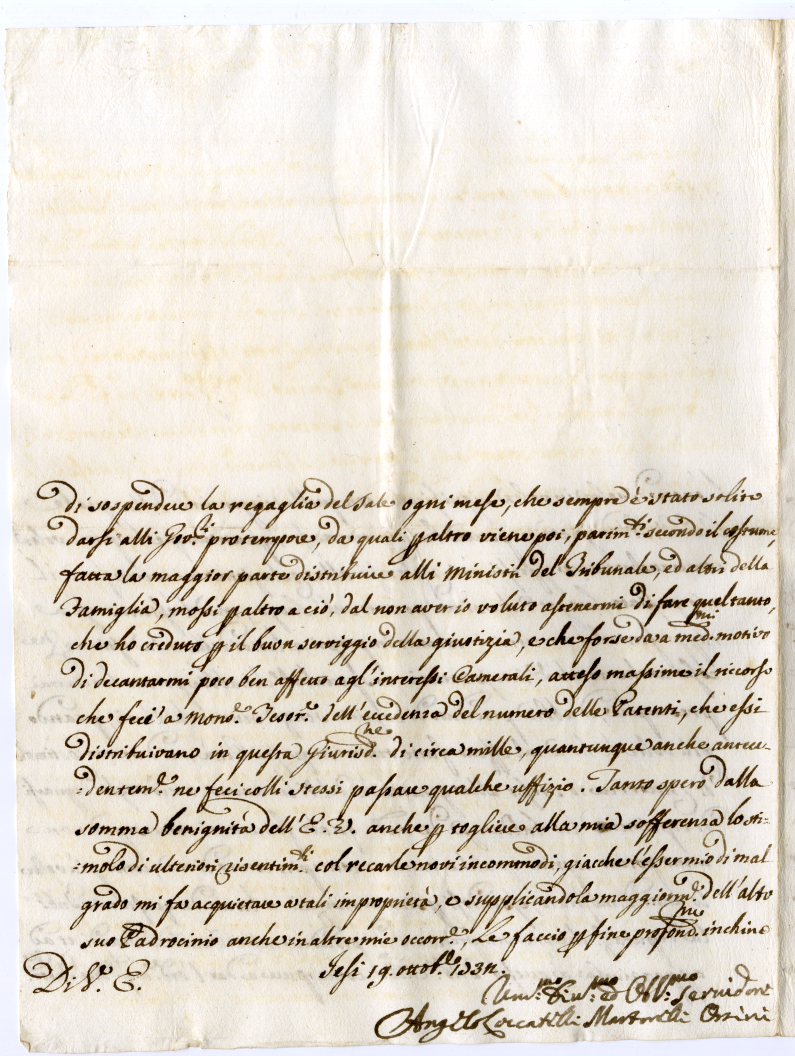 di sospendere la regaglia del Sale ogni mese, che sempre è stato solito
darsi alli Gov.ri protempore, da quali p altro viene poi, parim.ti secondo il costume,
fatta la maggior parte distribuire alli Ministri del Tribunale, ed altri della
Famiglia, mossi p altro a ciò, dal non aver io voluto astenermi di fare quel tanto,
che ho creduto p il buon serviggio della giustizia, e che forse da a med.mi motivo
di decantarmi poco ben affetto agl'interessi Camerali, atteso massime il ricorso
che feci a Mons.r Tesor.e dell'eccedenza del numero delle Patenti, che essi
distribuivano in questa Giurisd.ne di circa mille, quantunque anche antece-
:dentem.e ne feci colli stessi passare qualche uffizio. Tanto spero dalla
somma benignità dell'E. V. anche p togliere alla mia sofferenza lo sti-
:molo di ulteriori risentim.ti col recarle novi incommodi, giacche l'esser mio di mal
grado mi fa acquietare a tali improprietà, e supplicandola maggiorm.e dell'alto
suo Padrocinio anche in altre mie occorr.e, Le faccio p fine profond.mo inchino
Di V. E. Jesi 19. ottob.e
Um.mo ed Obl.mo Servidore
Angelo Martorelli Orsini